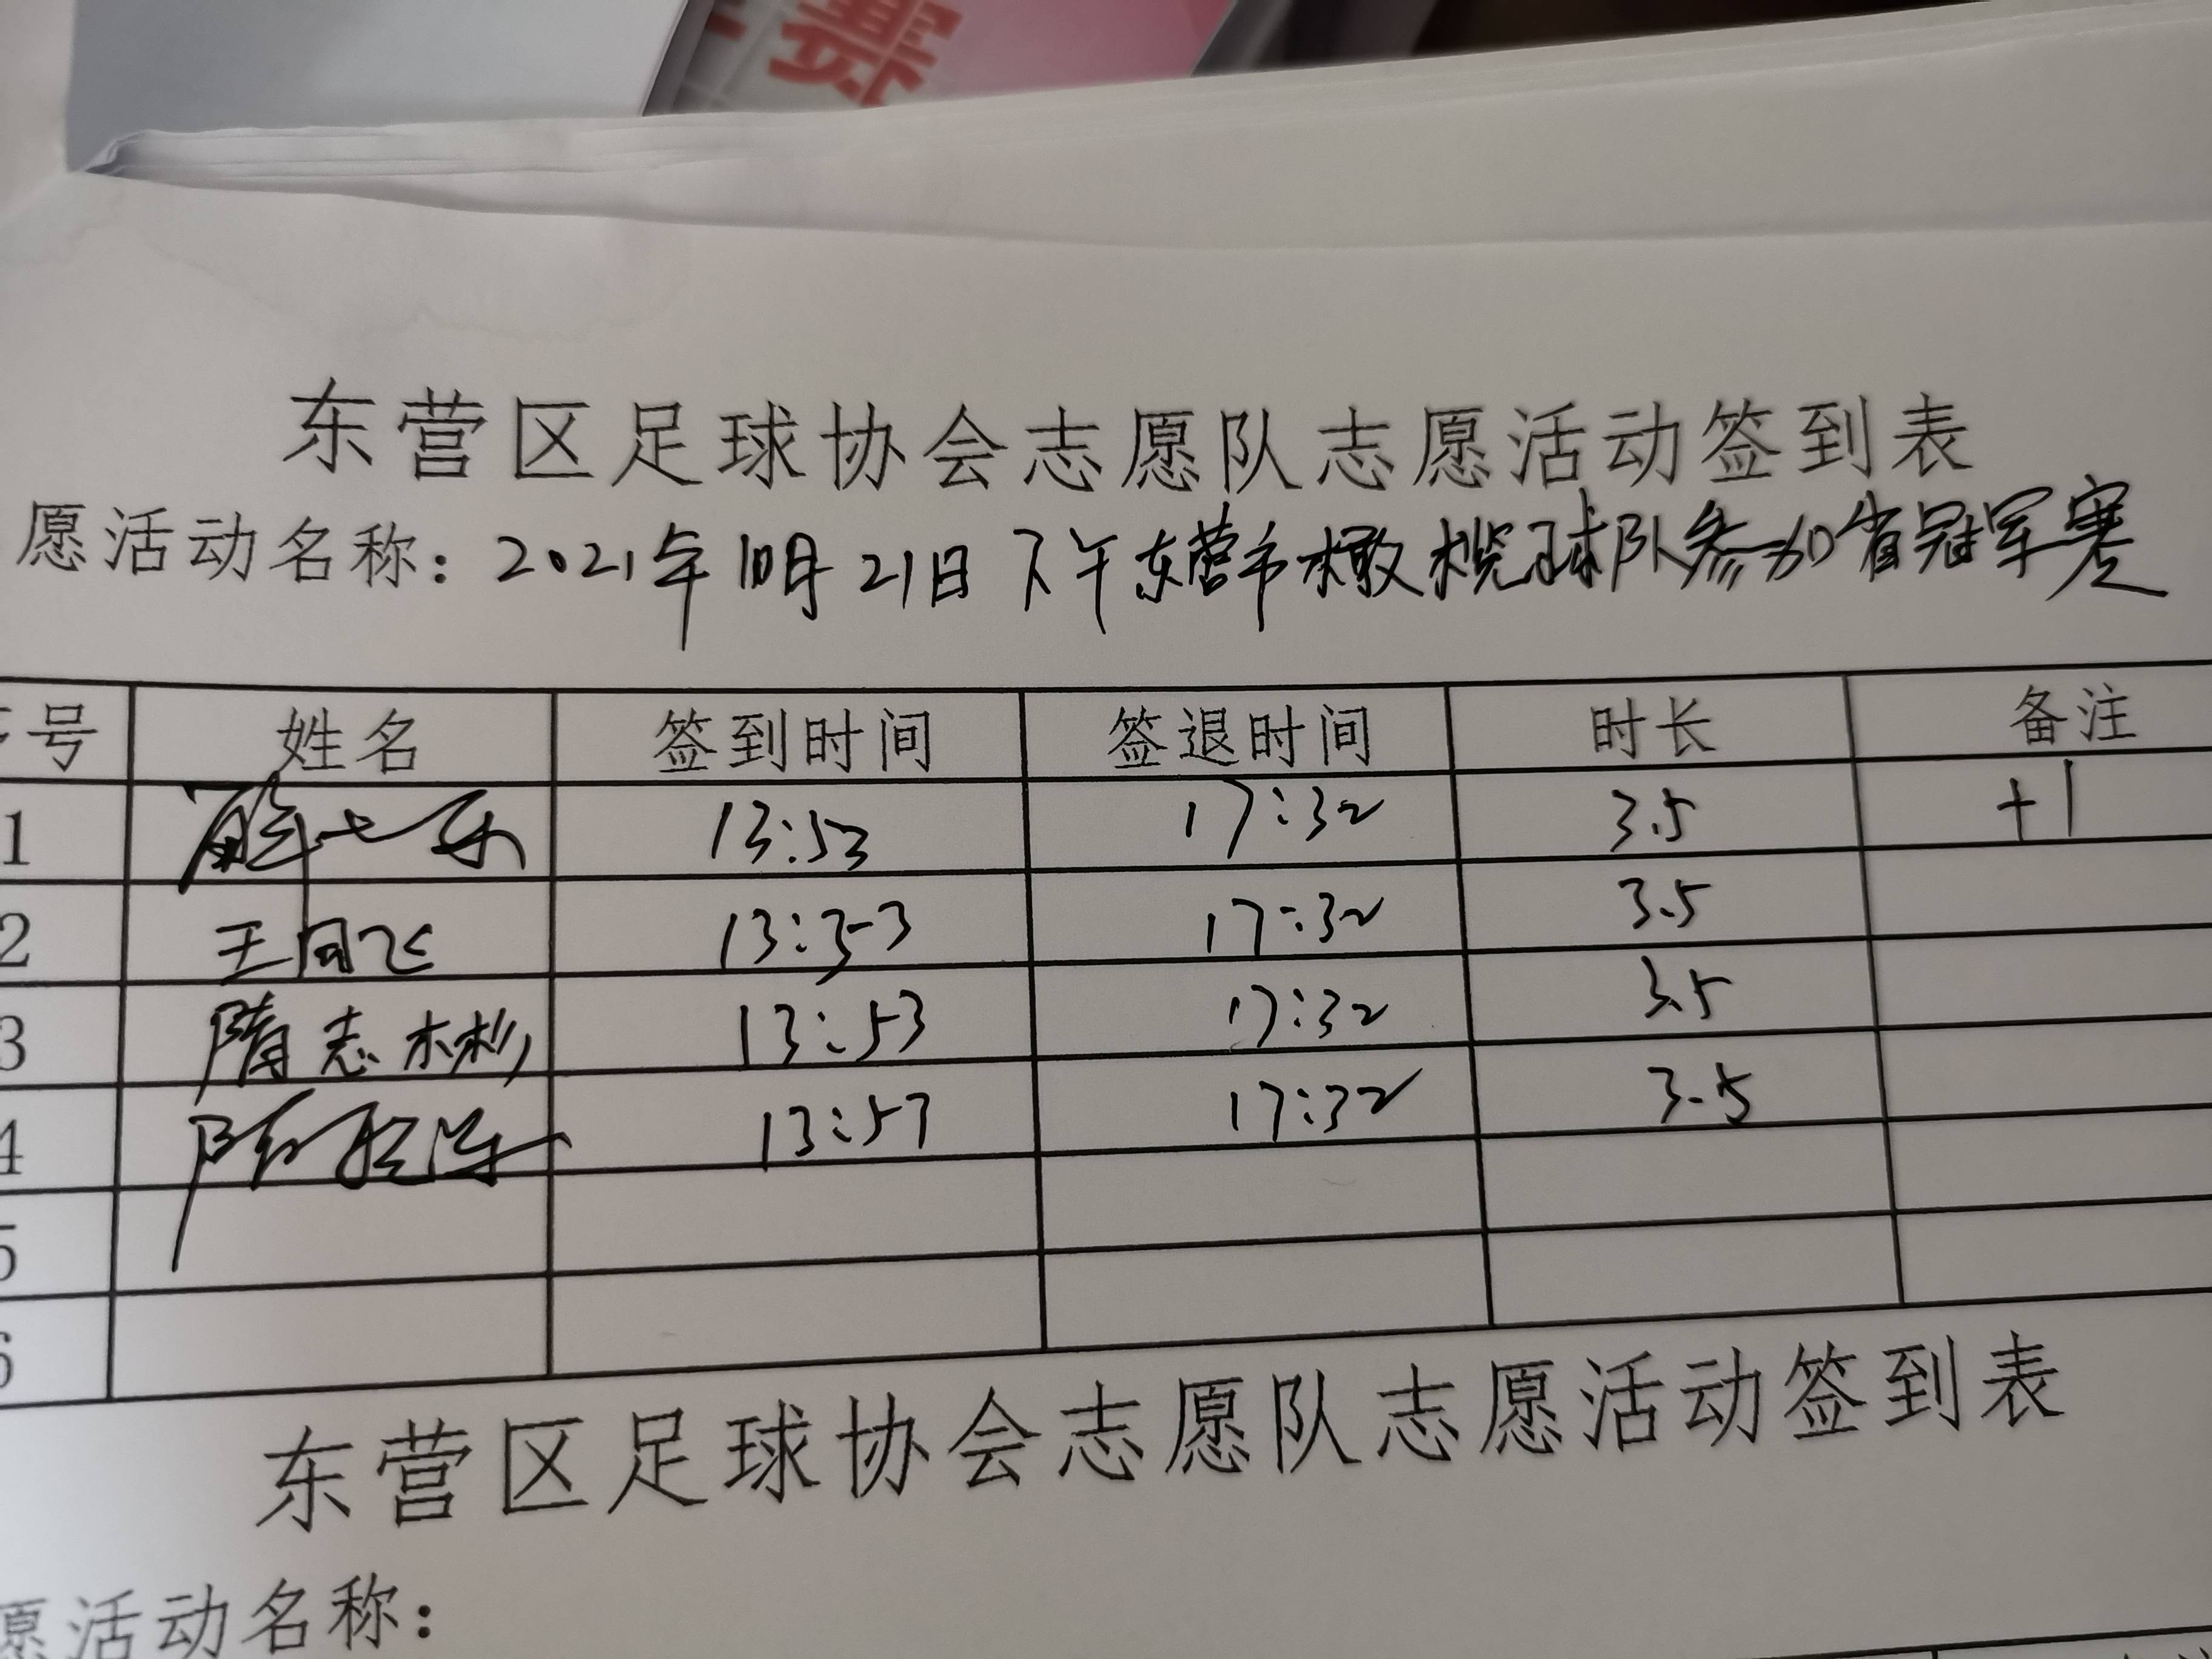 赛
东营区足球协会志愿队志愿活动签到表
愿活动名称：2021年10月21日下午东营市橄榄球队参加省冠军赛
号 姓名 签到时间 签退时间 时长 备注
1 13:53 17:32 3.5 +1
2 王同飞 13:53 17:32 3.5
3 隋志彬 13:53 17:32 3.5
4 13:57 17:32 3.5
5
6
东营区足球协会志愿队志愿活动签到表
愿活动名称：